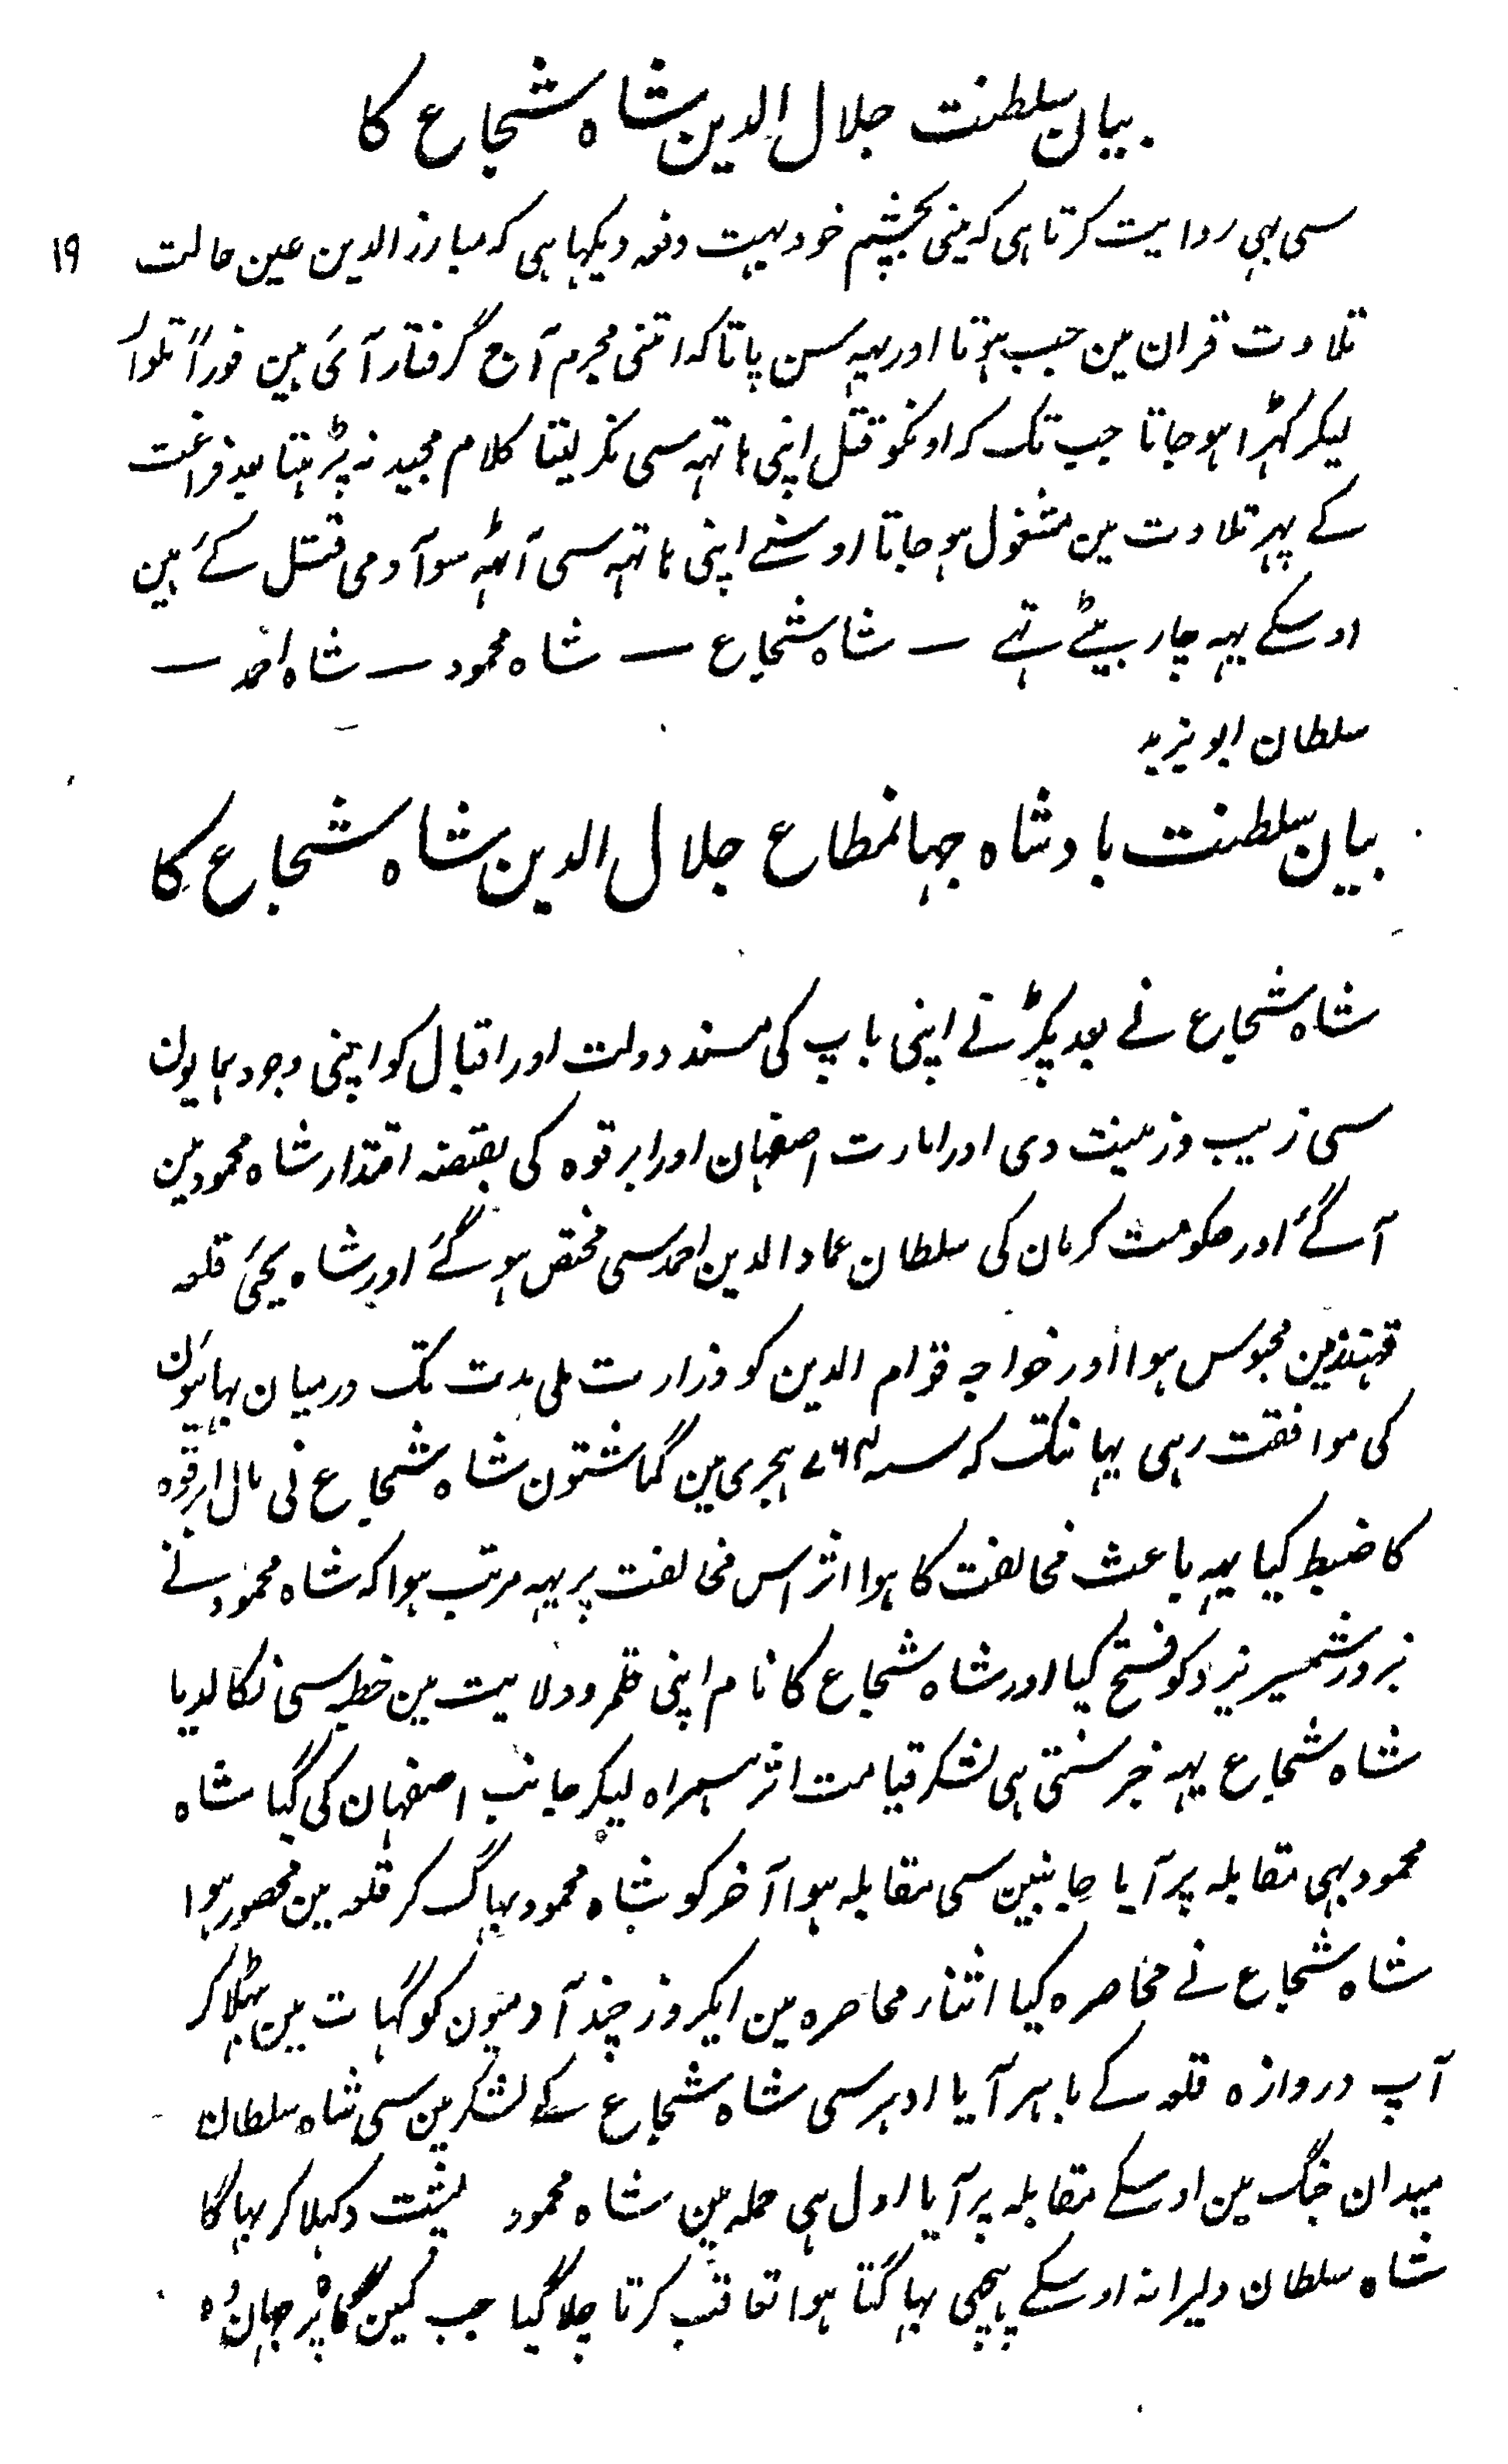 بیان سلطنت جلال الدین شاہ شجاع کا
۱۹
سی بہی روایت کرتا ہی کہ مینی بچشم خود بہت دفعہ دیکہا ہی کہ مبارز الدین عین حالت
تلاوت قران مین جب ہوتا اور یہہ سن پاتا کہ اتنی مجرم آج گرفتار آئی ہین فوراً تلوار
لیکر کہڑا ہو جاتا جب تک کہ اونکو قتل اپنی ہاتہہ سی نکر لیتا کلام مجید نہ پڑہتا بعد فراغت
کے پہر تلاوت مین مشغول ہو جاتا اوسنے اپنی ہاتہہ سی آٹہہ سو آدمی قتل کئے ہین
اوسکے یہہ چار بیٹے تہے — شاہ شجاع — شاہ محمود — شاہ احمد —
سلطان ابو یزید
بیان سلطنت بادشاہ جہانمطاع جلال الدین شاہ شجاع کا
شاہ شجاع نے بعد پکڑنے اپنی باپ کی مسند دولت اور اقبال کو اپنی وجود ہمایون
سی زیب و زینت دی اور امارت اصفہان اور ابرقوہ کی بقبضہ اقتدار شاہ محمود مین
آگئے اور حکومت کرمان کی سلطان عماد الدین احمد سی مختص ہوگئے اور شاہ یحیٰی قلعہ
قہندز مین محبوس ہوا اور خواجہ قوام الدین کو وزارت ملی مدت تک درمیان بہائیون
کی موافقت رہی یہانتک کہ سنہ ۷۶۴ ہجری مین گماشتون شاہ شجاع نی مال ابرقوہ
کا ضبط کیا یہہ باعث مخالفت کا ہوا اثر اس مخالفت پر یہہ مرتب ہوا کہ شاہ محمود نے
بزور شمسیر یزد کو فتح کیا اور شاہ شجاع کا نام اپنی قلمرو ولایت مین خطبہ سی نکالدیا
شاہ شجاع یہہ خبر سنتی ہی لشکر قیامت اثر ہمراہ لیکر جانب اصفہان کی گیا شاہ
محمود بہی مقابلہ پر آیا جانبین سی مقابلہ ہوا آخر کو شاہ محمود بہاگ کر قلعہ مین محصور ہوا
شاہ شجاع نے محاصرہ کیا اثنار محاصرہ مین ایکروز چند آدمیون کو گہات مین بہٹلا کر
آپ دروازہ قلعہ کے باہر آیا ادہر سی شاہ شجاع کے لشکر مین سی شاہ سلطان
میدان جنگ مین اوسکے مقابلہ پر آیا اول ہی حملہ مین شاہ محمود پشت دکہلا کر بہاگا
شاہ سلطان دلیرانہ اوسکے پیچہی بہاگتا ہوا تعاقب کرتا چلا گیا جب کمین گاہ پر جہان وہ